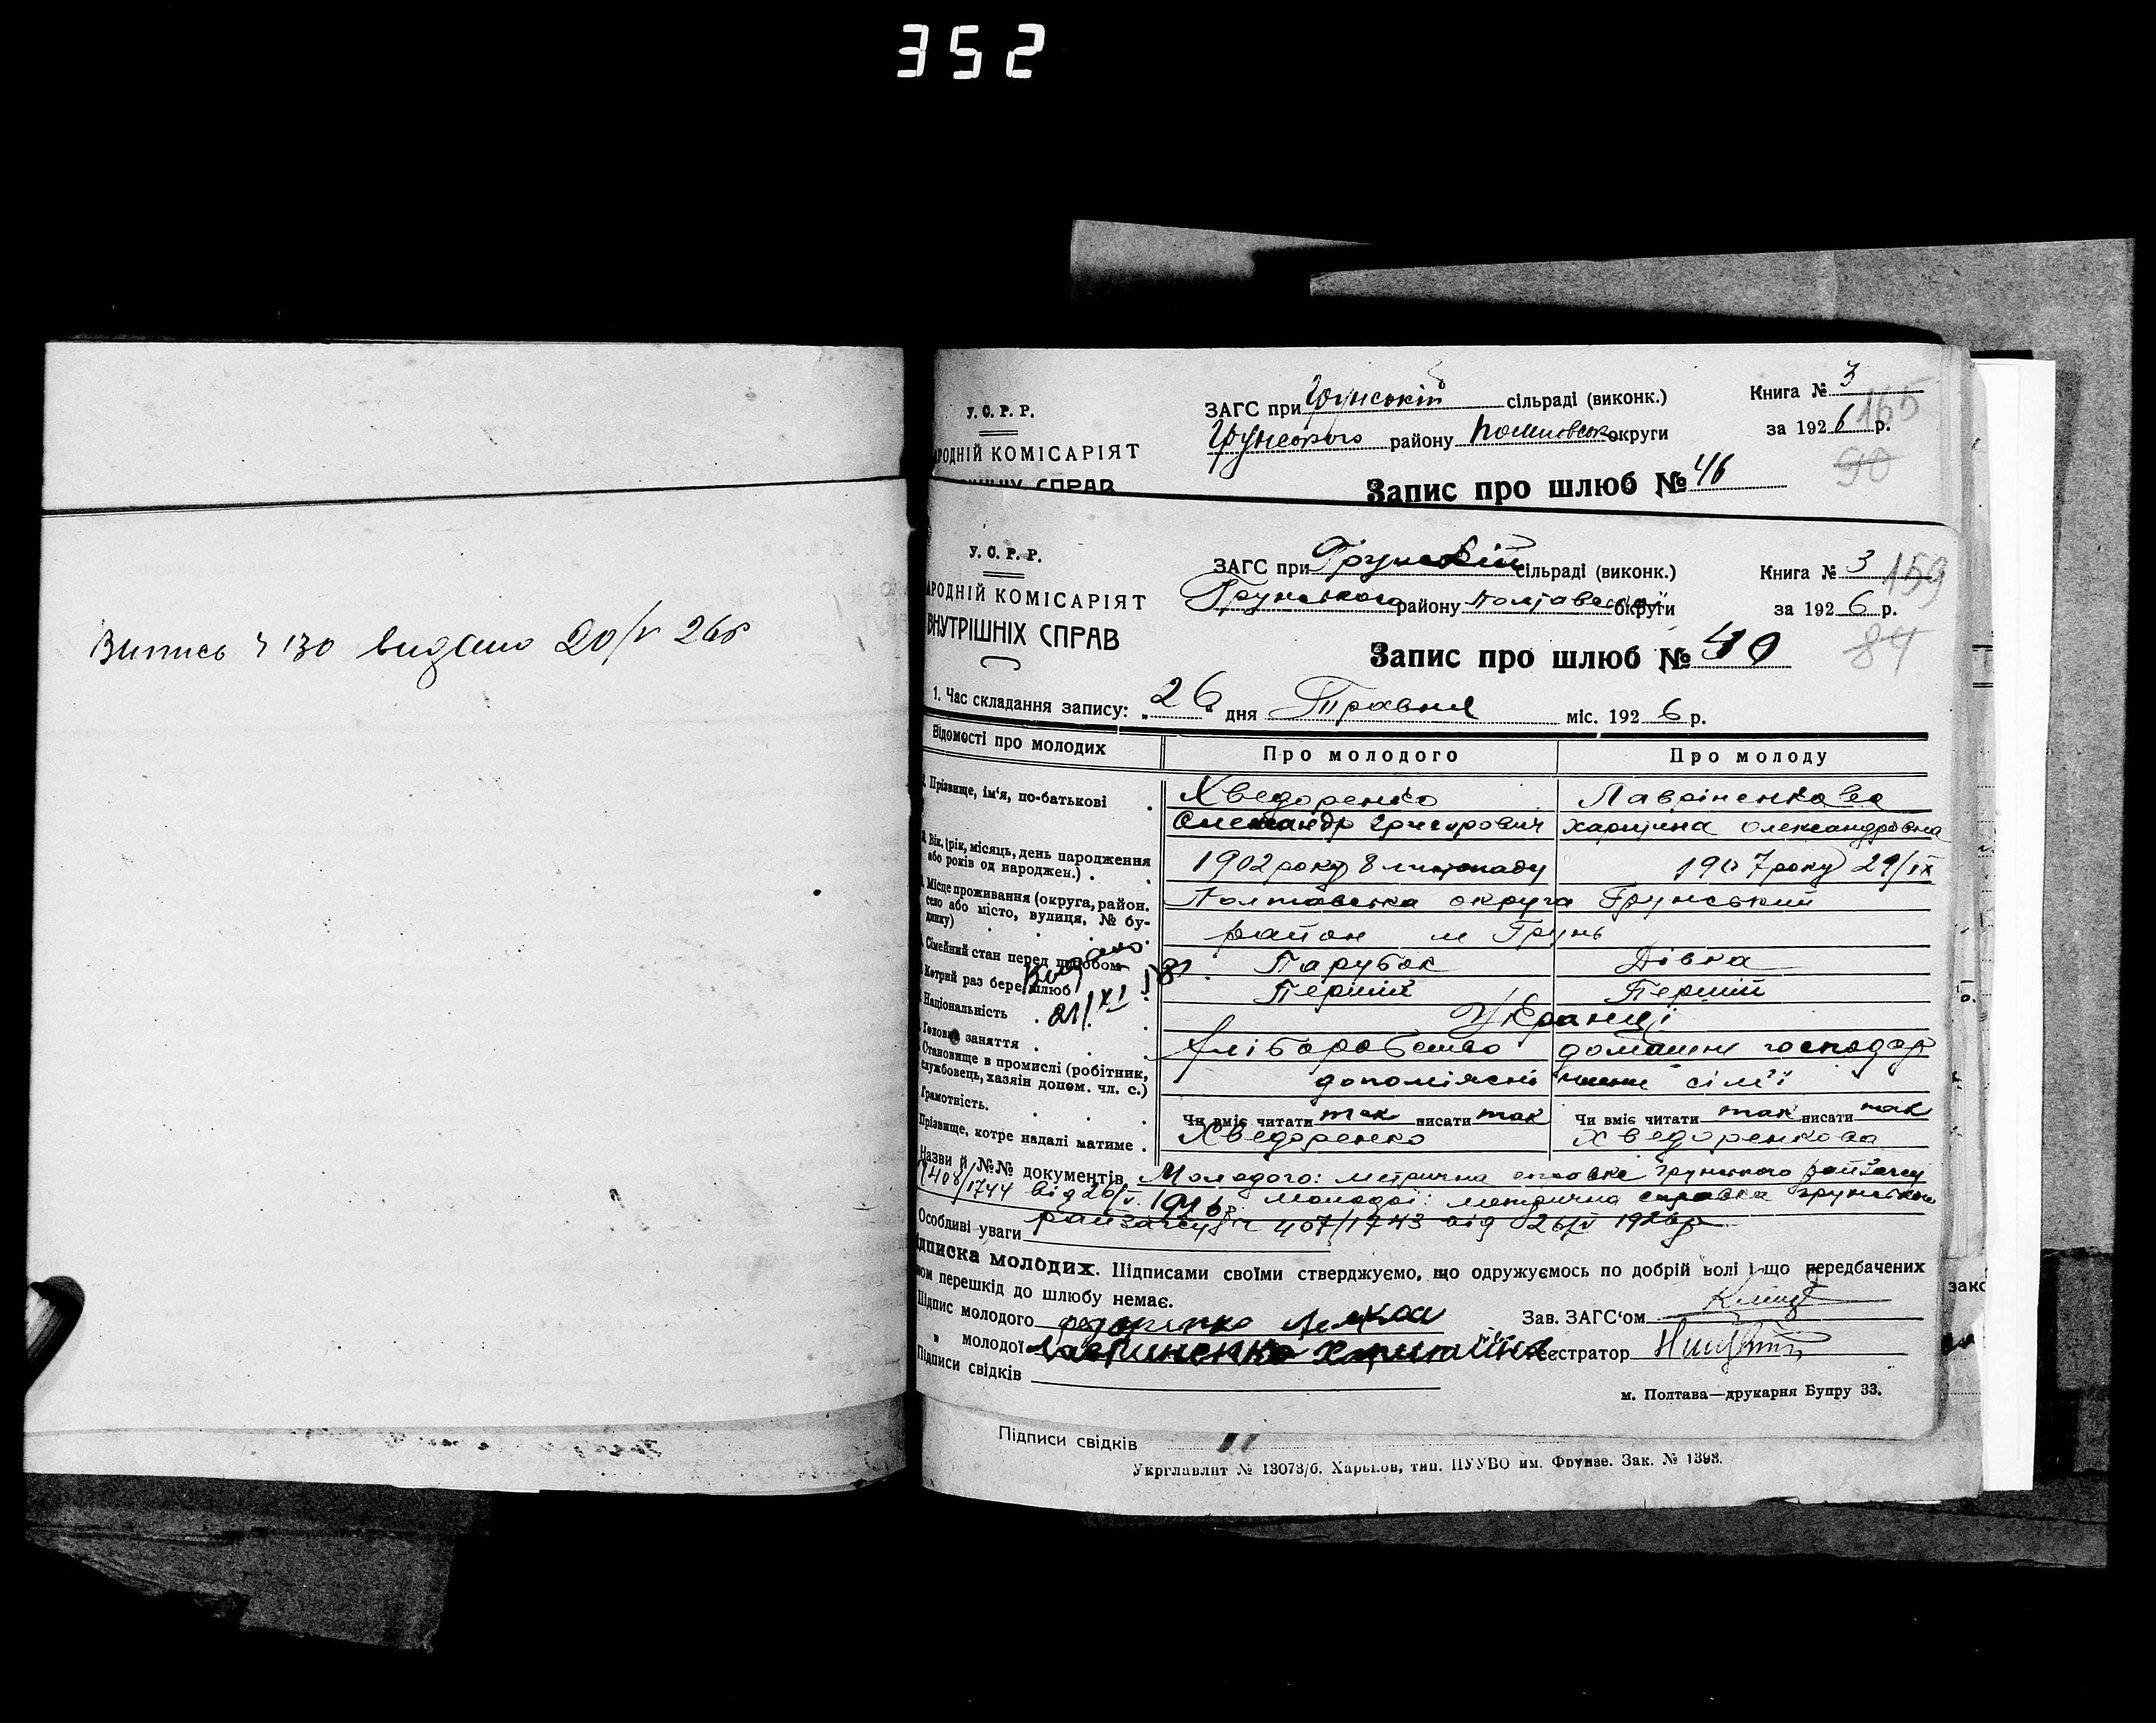 352
Випись ч 130 видано 20/V 26 р
У. С. Р. Р.
РОДНІЙ КОМІСАРІЯТ
СПРАВ
ЗАГС при Грунській сільраді (виконк.)
Грунського району Полтавськ округи
Книга № 3
165
за 1926 р.
90
Запис про шлюб № 46
У. С. Р. Р.
АРОДНІЙ КОМІСАРІЯТ
ВНУТРІШНІХ СПРАВ
ЗАГС при Грунській сільраді (виконк.)
Грунського району Полтавської округи
Книга № 3
159
за 1926 р.
84
Запис про шлюб № 40
1. Час складання запису: „26“ дня Травня міс. 1926 р.
Відомості про молодих Про молодого Про молоду
Прізвище, ім'я, по-батькові . Хведоренко Лавріненкова
Олександр Григорович Харитина Олександровна
Вік. (рік, місяць, день народження
або років од народжен.) . . 1902 року 8 листопаду 1907 року 29/IX
Місце проживання (округа, район.
село або місто, вулиця, № бу-
динку) Полтавська округа Грунський
район м Грунь
Сімейний стан перед шлюбом Парубок Дівка
Котрий раз бере шлюб Перший Перший
Видано
21/XI
Національність . Українці
Головне заняття . Хліборобство домашнє господар
Становище в промислі (робітник,
службовець, хазяін допом. чл. с.) допоміжні члени сім'ї
Грамотність. Чи вміє читати так писати так Чи вміє читати так писати так
Прізвище, котре надалі матиме . Хведоренко Хведоренкова
Назви й №№ документів Молодого: метрична справка Грунського райзагсу
ч 408/1744 від 26/V 1926 р. Молодої: метрична справка Грунського
райзагсу ч 407/1743 від 26/V 1926 р
Особливі уваги
ідписка молодих. Підписами своїми стверджуємо, що одружуємось по добрій волі і що передбачених
ном перешкід до шлюбу немає.
Підпис молодого федоренко
Зав. ЗАГС'ом
„ молодої Лавриненко Харитина
Реєстратор
Підписи свідків
м. Полтава—друкарня Бупру 33.
зако
Підписи свідків
Укрглавліт № 13073/б. Харьков, тип. ПУУВО им. Фрунзе. Зак. № 1393.